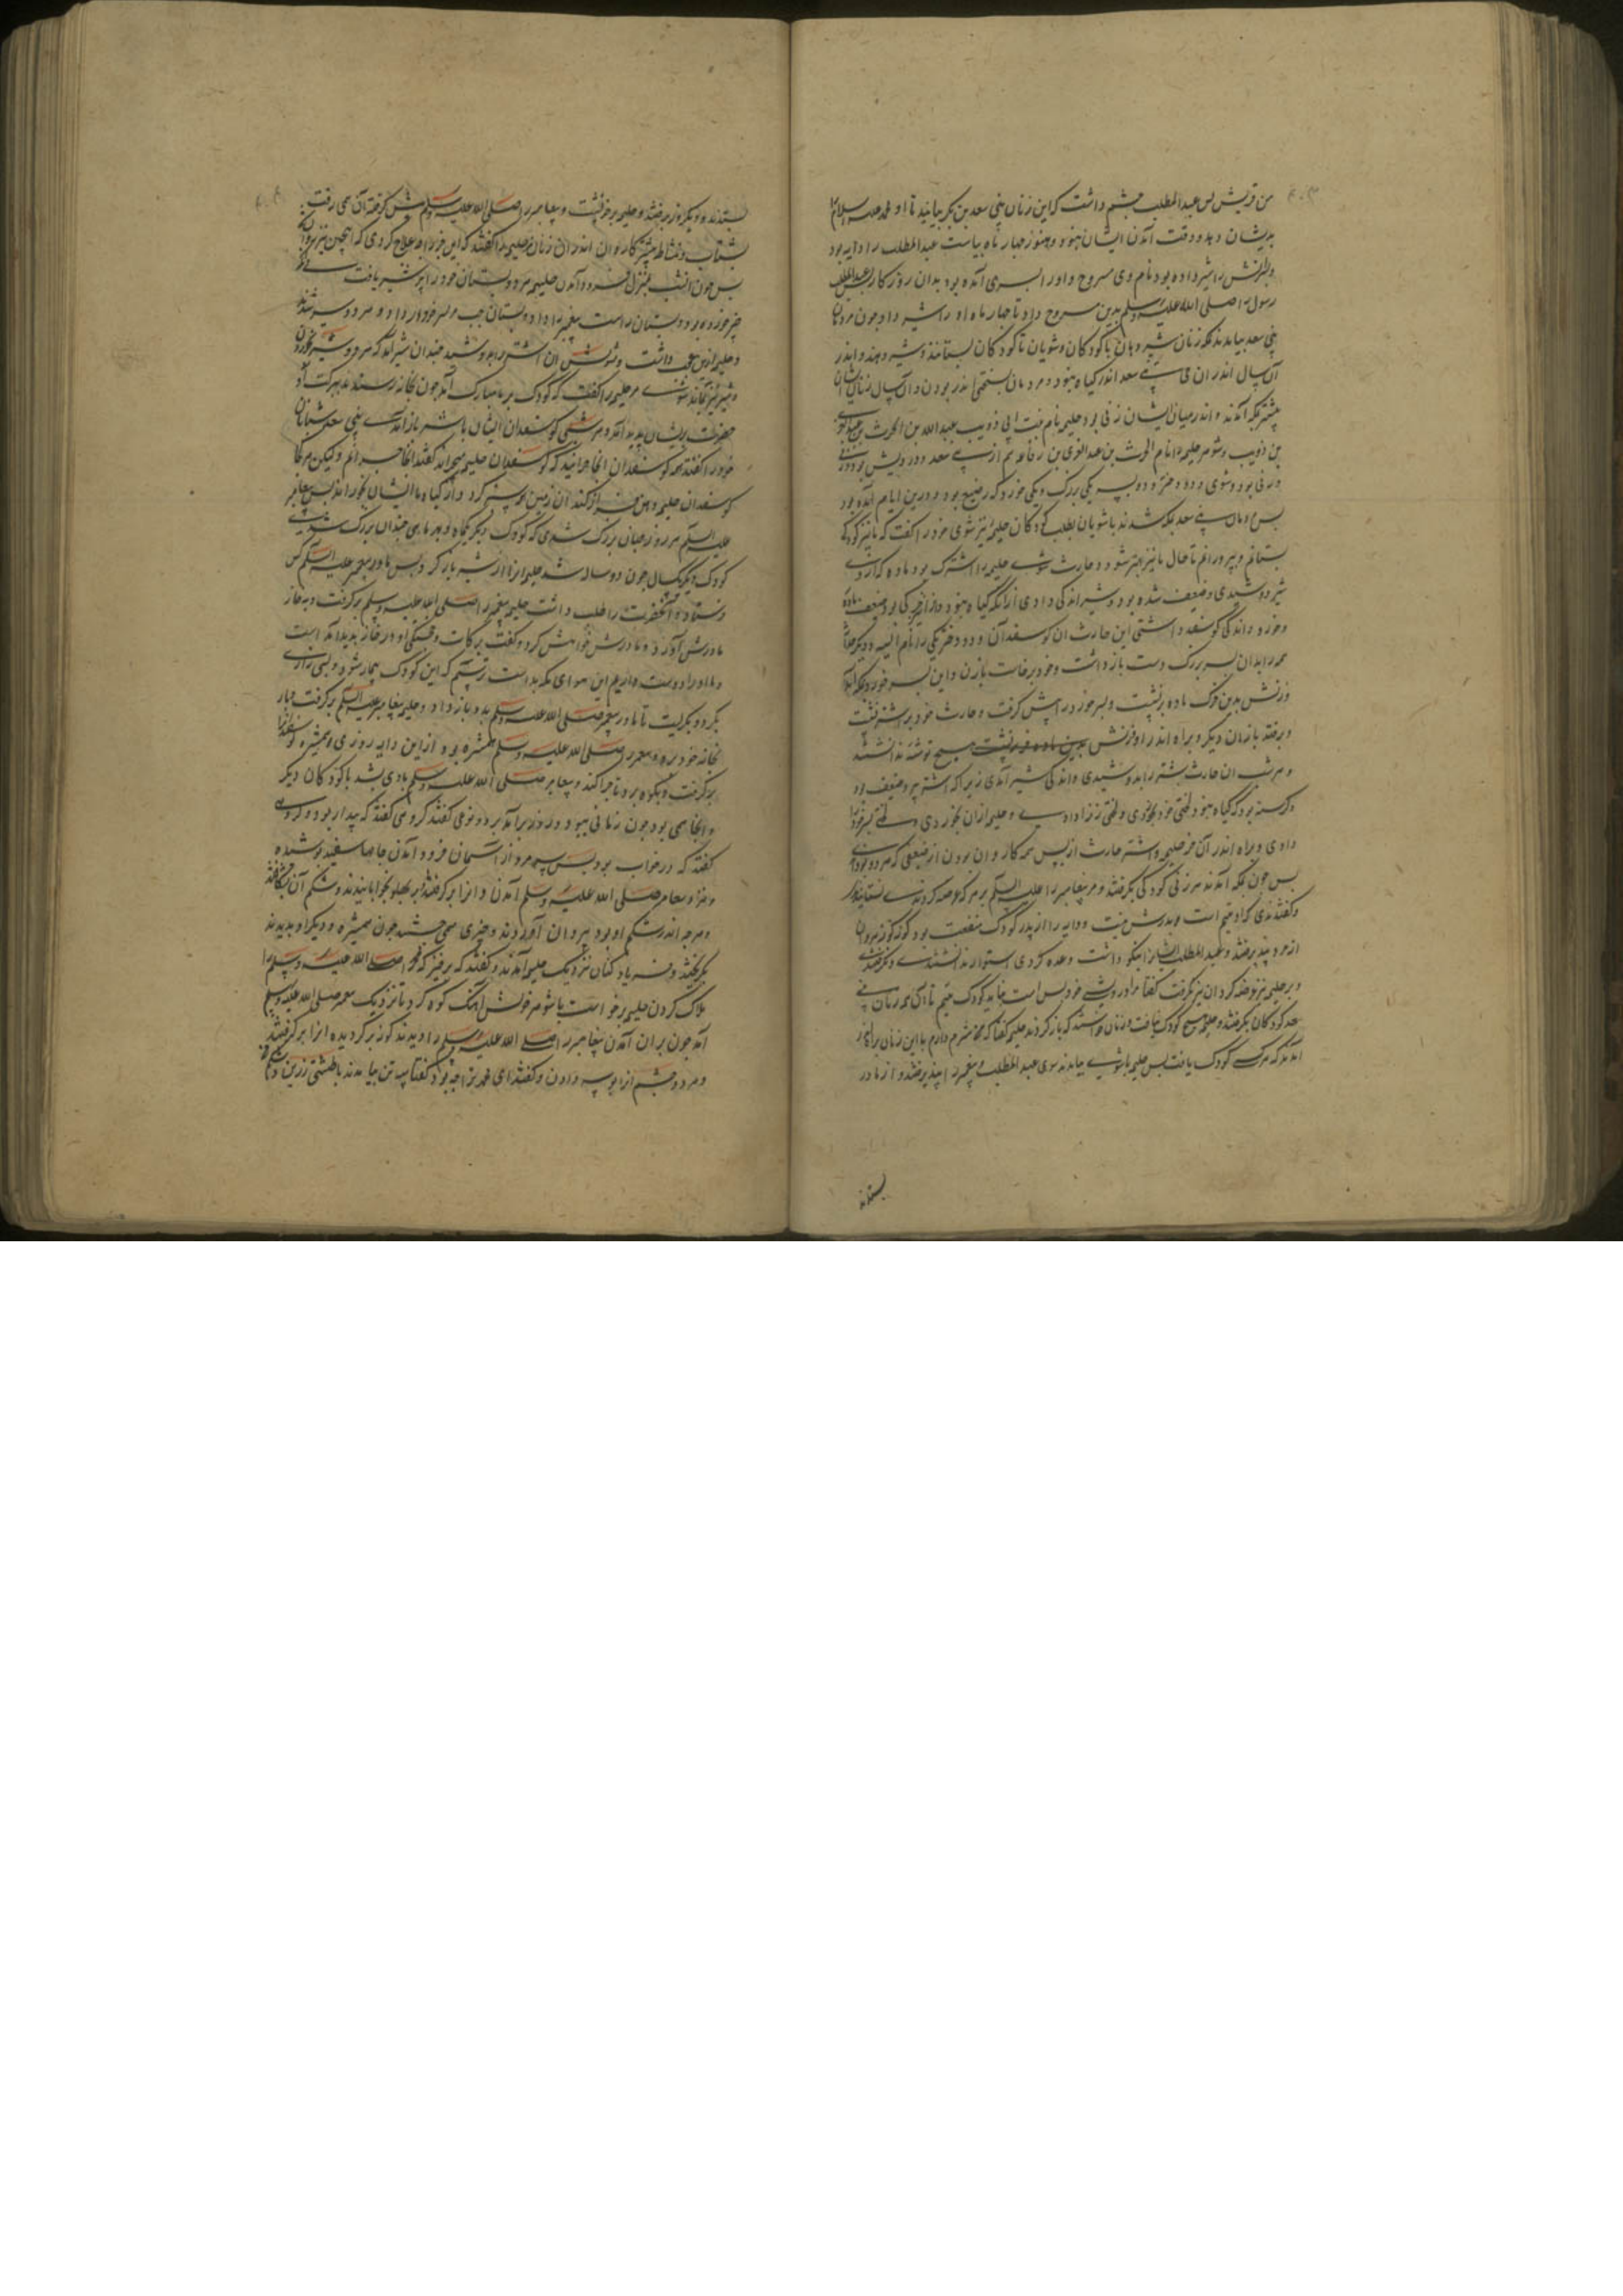 من قریش پس عبدالمطلب چشم داشت که این زنان بنی سعد بن بکر بیایند تا او محمد علیه السلام را
بدیشان دهد و وقت آمدن ایشان نبود و هنوز چهار ماه بایست عبدالمطلب را دایه بود
را شیر داده بود نام وی مسروح و او را پسری آمده بود بدان روزکار عبدالمطلب
رسول را صلی الله علیه وسلم بدین مسروح داد تا چهار ماه او را شیر داد چون مردمان
بنی سعد بیامدند بمکه زنان شیر دهان با کودکان و شویان تا کودکان بستانند و شیر دهند و اندر
آن سال اندر بنی سعد اندر کیاه نبود و مردمان بسختی اندر بودن و آن سال زنان ایشان
بیشتر بمکه آمدند و اندر میان ایشان زنی بود حلیمه نام بنت ابی ذویب عبدالله بن الحرث
بن ذویب و شوهر حلیمه را نام الحرث بن عبدالعزی بن رفاعه هم از بنی سعد و درویش بودند
و زنی بود و شوی و دو دختر و دو پسر یکی بزرک و یکی خورد که رضیع بود و درین ایام آمده بود
پس مردمان بنی سعد بمکه شدند با شویان بطلب کودکان حلیمه نیز شوی خود را کفت که ما نیز کودکی
بستانم و بپرورانم تا حال ما نیز بهتر شود و حارث شوی حلیمه را اشترکی بود ماده که از وی
شیر دوشیدی و ضعیف شده بود و شیر اندکی دادی از آنکه کیاه نبود و دراز کوشی بود ضعیف ماده
و خورد و اندکی کوسفند داشتی این حارث آن کوسفندان و دو دختر یکی را نام انیسه و دیکر
همه را بدان پسر بزرک دست باز داشت و خود برخاست با زن و این پسر خورد بمکه آمد
و زنش بدین خرک ماده برنشست و پسر خورد را پیش کرفت و حارث خود بر اشتر نشست
و برفتند با زنان دیکر و براه اندر او و زنش هیچ توشه نداشتند
و هر شب آن حارث اشتر را بدوشیدی و اندکی شیر آمدی زیرا که اشتر پیر و ضعیف بود
و کرسنه بود که کیاه نبود لختی خود بخوردی و لختی زن را دادی و حلیمه از آن بخوردی و لختی پسر خود را
دادی و براه اندر آن خر حلیمه و اشتر حارث از پس همه کاروان بودن از ضعیفی که هر دو بودند
پس چون بمکه آمدند هر زنی کودکی بکرفتند و مر پیغامبر را علیه السلم بر هر که عرضه کردندی نستانیدی
و کفتندی که او یتیم است و پدرش نیست و دایه را از پدر کودک منفعت بود
از مرد پذیرفتند و عبدالمطلب ایشان را نیکو داشت وعده کردی استوار نداشتندی و نکرفتندی
و بر حلیمه نیز عرضه کرد آن نیز نکرفت کفتا مرا درویشی خود بس است نباید کودک یتیم تا آن همه زنان بنی
سعد کودکان بکرفتند و حلیمه هیچ کودک نیافت و زنان خواستند که باز کردند حلیمه کفتا که مرا شرم دارم با این زنان براه اندر
آمدند که هر کسی کودک یافت پس حلیمه با شوی بیامدند سوی عبدالمطلب و پیغمبر را پذیرفتند و از مادر
بستدند
بستدند و دیکر روز برفتند و حلیمه بر خر نشست و پیغامبر را صلی الله علیه وسلم پیش کرفته آن خر می رفت
بشتاب و نشاط پیشتر کاروان اندر آن زنان مر حلیمه را کفتند که این خر را چه علاج کردی که اینچنین تیز میرود
پس چون آن شب بمنزل فرود آمدن حلیمه هر دو پستان خود را پر شیر یافت
خورده بود و پستان راست پیغمبر را داد و پستان چپ مر پسر خود را داد و هر دو سیر شدند
و حلیمه از این عجب داشت و شویش آن اشتر را بدوشید چندان شیر آمد که هر دو سیر خوردن
و شیر نیز بماند شوی مر حلیمه را کفت که کودک بر ما مبارک آمد چون بخانه رسیدند ببرکت آن
حضرت بدیشان پدید آمد و هر شبی کوسفندان ایشان با شیر باز آمدی بنی سعد شبانان
خود را کفتند که کوسفندان آنجا چرانید که کوسفندان حلیمه میچراند کفتند آنجا چرانیم ولیکن هر کجا
کوسفندان حلیمه دهن فراز کنند آن زمین پر سبزه کردد و از کیاه ما ایشان بخورانند پس پیغامبر
علیه السلم هر روز چنان بزرک شدی که کودک دیکر بیکماه و بهر ماهی چندان بزرک شدی که
کودک دیکر بیکسال چون دو ساله شد حلیمه او را از شیر باز کرد و پس مادر پیغمبر علیه السلم کس
فرستاد و آنحضرت را طلب داشت حلیمه پیغمبر را صلی الله علیه وسلم برکرفت و بخانه
مادرش آورد و مادرش خواهش کرد و کفت برکات و خجستکی او در خانه پدید آمد است
و ما او را دوست داریم این هوای مکه بد است ترسیم که این کودک بیمار شود و بسی زاری
بکرد و بکریست تا مادر پیغمبر صلی الله علیه وسلم بدو باز داد و حلیمه پیغامبر علیه السلم برکرفت و باز
بخانه خود برد و پیغمبر را صلی الله علیه وسلم همشیره بود از این دایه روزی همشیره کوسفندان را
برکرفت و بکوه برد تا چرا کند و پیغامبر صلی الله علیه وسلم با وی بشد با کودکان دیکر
و آنجا همی بود چون زمانی ببود و روز برآمد بر دو نوعی کفتند کروهی کفتند که بیدار بود و کروهی
کفتند که در خواب بود پس سه مرد از آسمان فرود آمدن جامها سفید پوشیده
و فرا پیغامبر صلی الله علیه وسلم آمدن و او را برکرفتند و بر پهلو بخوابانیدند و شکم آن بشکافتند
و هر چه اندر شکم او بود بیرون آوردند و چیزی همی جستند چون همشیره و دیکران بدیدند
بکریختند و فریاد کنان نزدیک حلیمه آمدند و کفتند که برخیز که محمد را صلی الله علیه وسلم
هلاک کردن حلیمه برخواست با شوهر خویش آهنک کوه کرد تا نزدیک پیغمبر صلی الله علیه وسلم
آمد چون بر آن آمدن پیغامبر را صلی الله علیه وسلم را دیدند کونه بر کردیده او را برکرفتند
و هر دو چشم او را بوسه دادن و کفتند ای محمد ترا چه بود کفتا سه تن بیامدند با طشتی زرین و شکم من